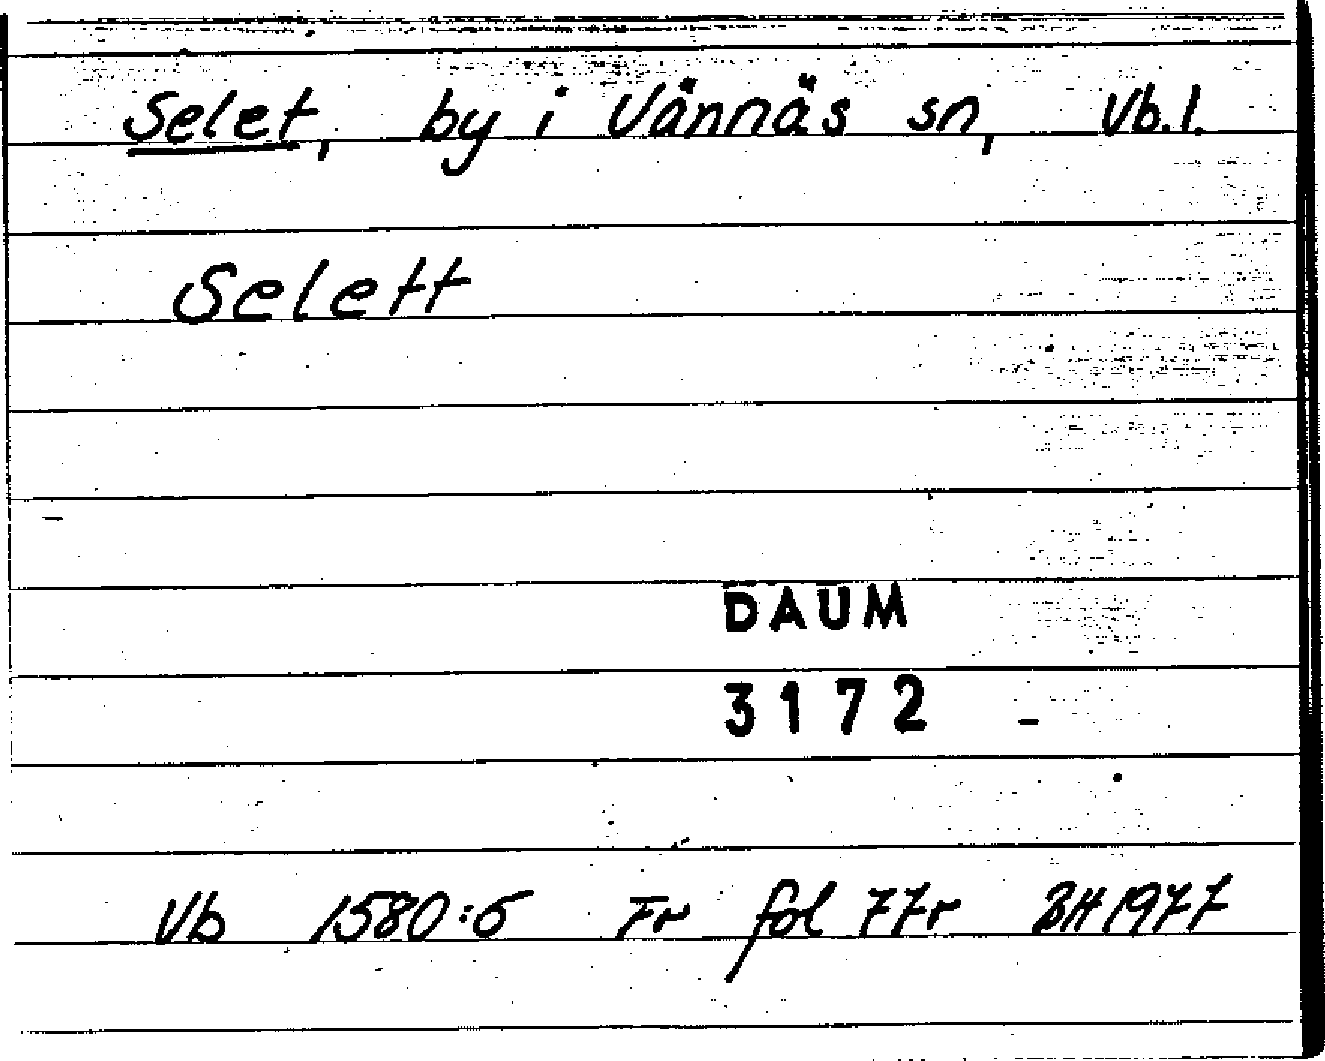 Selet, by i Vännäs sn, Vb.l.
Selett
DAUM
3172 -
Vb 1580:5 Fr fol 77r BH 1977